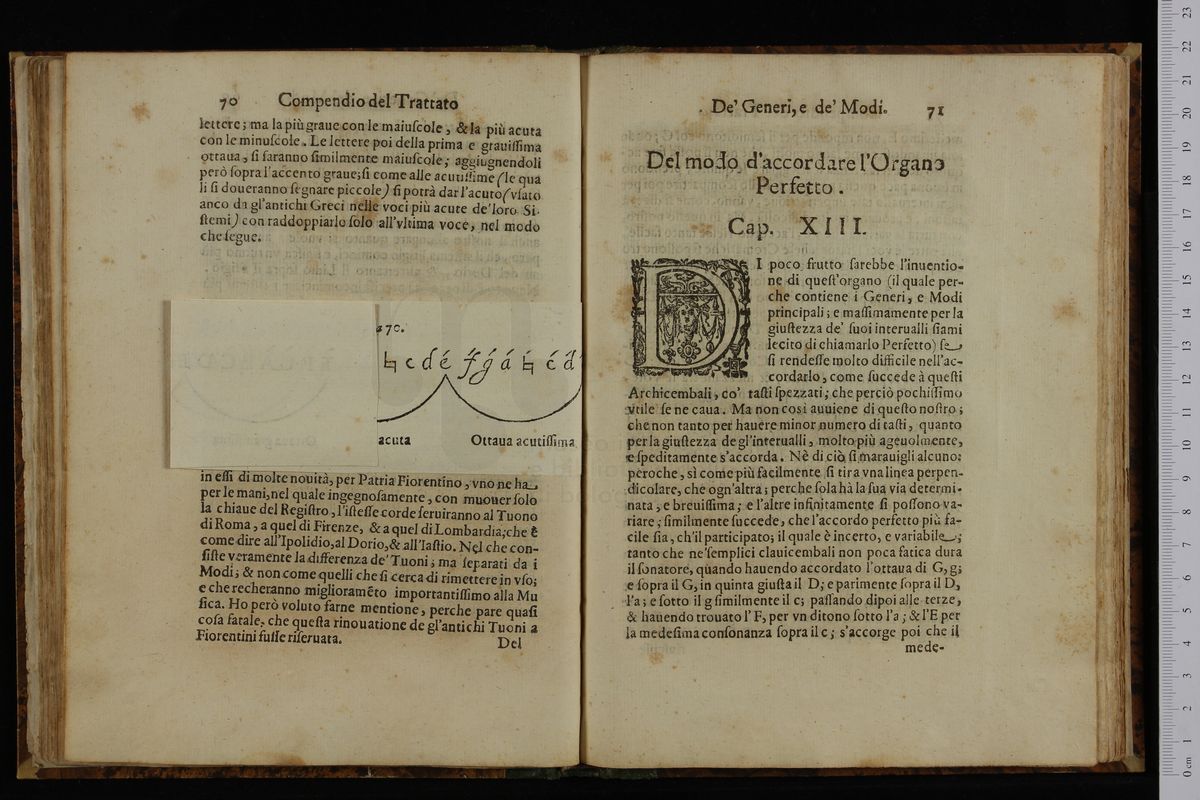 70 Compendio del Trattato
lettere; ma la più graue con le maiuſcole, & la più acuta
con le minuſcole. Le lettere poi della prima e grauiſſima
ottaua, ſi faranno ſimilmente maiuſcole; aggiugnendoli
però ſopra l'accento graue; ſi come alle acutiſſime (le qua
li ſi doueranno ſegnare piccole) ſi potrà dar l'acuto (vſato
anco da gl'antichi Greci nelle voci più acute de' loro Si-
ſtemi) con raddoppiarlo ſolo all'vltima voce, nel modo
che ſegue.
a 70.
♮ c d é f́ ǵ á ♮ ć d́
acuta Ottaua acutiſſima
in eſſi di molte nouità, per Patria Fiorentino, vno ne ha
per le mani, nel quale ingegnoſamente, con muouer ſolo
la chiaue del Regiſtro, l'iſteſſe corde ſeruiranno al Tuono
di Roma, a quel di Firenze, & a quel di Lombardia; che è
come dire all'Ipolidio, al Dorio, & all'Iaſtio. Nel che con-
ſiſte veramente la differenza de' Tuoni; ma ſeparati da i
Modi; & non come quelli che ſi cerca di rimettere in vſo;
e che recheranno miglioramẽto importantiſſimo alla Mu
ſica. Ho però voluto farne mentione, perche pare quaſi
coſa fatale, che queſta rinouatione de gl'antichi Tuoni a
Fiorentini fuſſe riſeruata.
Del
De' Generi, e de' Modi. 71
Del modo d'accordare l'Organo
Perfetto.
Cap. XIII.
DI poco frutto ſarebbe l'inuentio-
ne di queſt'organo (il quale per-
che contiene i Generi, e Modi
principali; e maſſimamente per la
giuſtezza de' ſuoi interualli ſiami
lecito di chiamarlo Perfetto) ſe
ſi rendeſſe molto difficile nell'ac-
cordarlo, come ſuccede à queſti
Archicembali, co' taſti ſpezzati; che perciò pochiſſimo
vtile ſe ne caua. Ma non cosi auuiene di queſto noſtro;
che non tanto per hauere minor numero di taſti, quanto
per la giuſtezza de gl'interualli, molto più ageuolmente,
e ſpeditamente s'accorda. Nè di ciò ſi marauigli alcuno:
peroche, sì come più facilmente ſi tira vna linea perpen-
dicolare, che ogn'altra; perche ſola hà la ſua via determi-
nata, e breuiſſima; e l'altre infinitamente ſi poſſono va-
riare; ſimilmente ſuccede, che l'accordo perfetto più fa-
cile ſia, ch'il participato; il quale è incerto, e variabile;
tanto che ne' ſemplici clauicembali non poca fatica dura
il ſonatore, quando hauendo accordato l'ottaua di G, g;
e ſopra il G, in quinta giuſta il D; e parimente ſopra il D,
l'a; e ſotto il g ſimilmente il c; paſſando dipoi alle terze,
& hauendo trouato l'F, per vn ditono ſotto l'a; & l'E per
la medeſima conſonanza ſopra il c; s'accorge poi che il
mede-